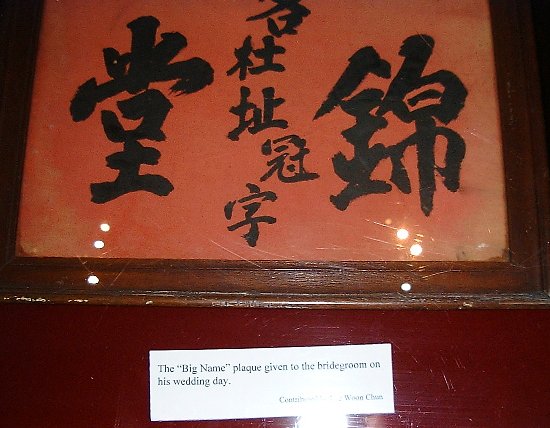 錦
杜址冠字
堂
The “Big Name” plaque given to the bridegroom on
his wedding day.
Contributed Woon Chun